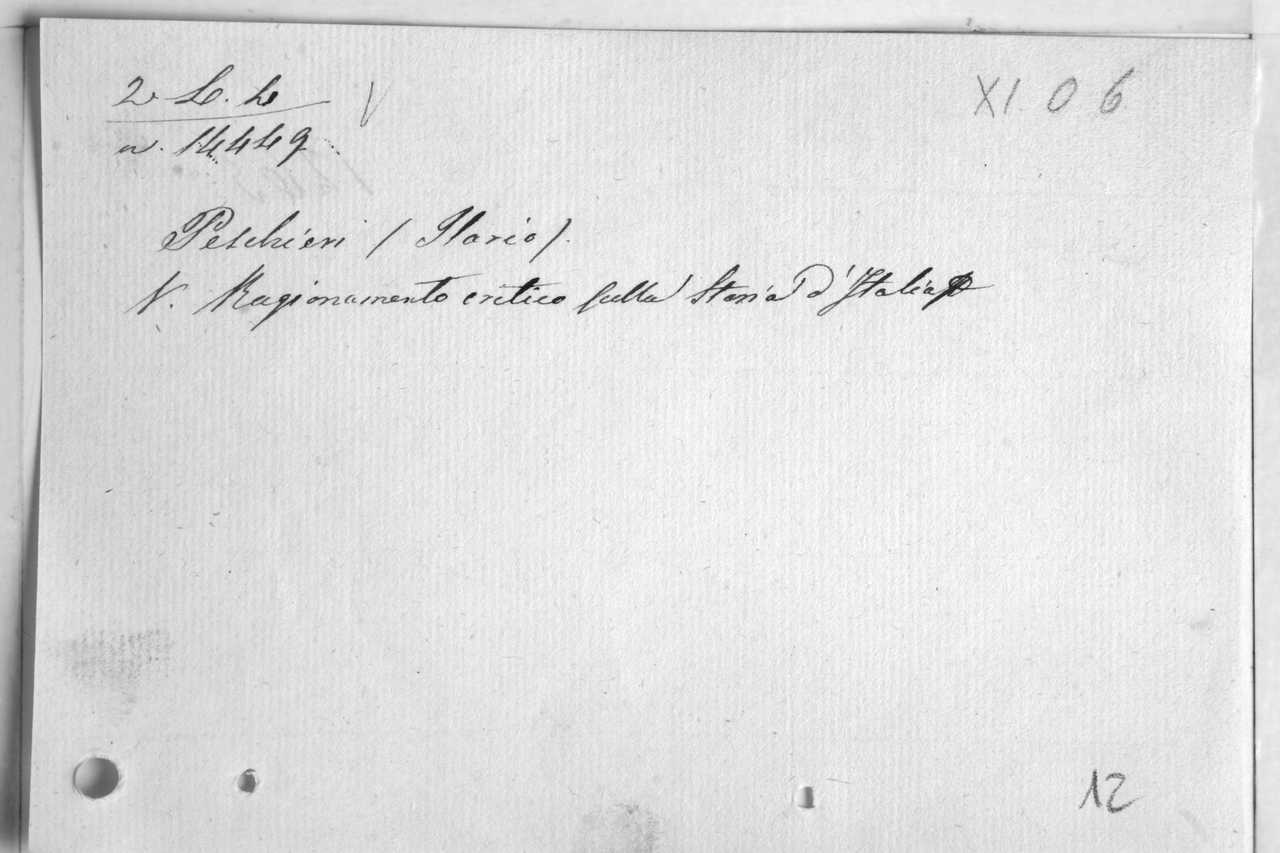 2. L. L. V XI 0 6
n. 14449
Peschieri (Ilario).
V. Ragionamento critico sulla Storia d'Italia
12